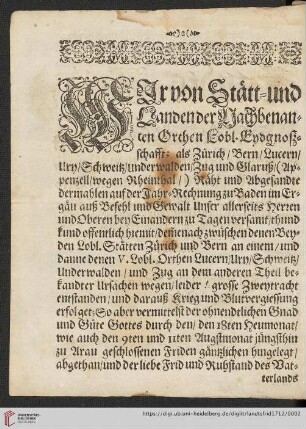 ❧)o(❧
WIr von Stätt- und
Landen der Nachbenan-
ten Orthen Lobl. Eydgnoß-
schafft: als Zürich/ Bern/ Lucern/
Ury/ Schweitz/ underwalden/ Zug und Glaruß/ (Ap-
penzell/ wegen Rheinthal/) Räht und Abgesandte
dermahlen auf der Jahr-Rechnung zu Baden im Er-
gäu auß Befehl und Gewalt Unser allerseits Herren
und Oberen bey Einandern zu Tagen versamt/ thund
kund offentlich hiemit/ demnach zwüschen denen Bey-
den Lobl. Stätten Zürich und Bern an einem/ und
danne denen V. Lobl. Orthen Lucern/ Ury/ Schweitz/
Underwalden/ und Zug an dem anderen Theil be-
kandter Ursachen wegen/ leider! grosse Zweytracht
entstanden/ und darauß Krieg und Blutvergiessung
erfolget: So aber vermittelst der ohnendlichen Gnad
und Güte Gottes durch den/ den 18ten Heumonat/
wie auch den 9ten und 11ten Augstmonat jüngsthin
zu Arau geschlossenen Friden gäntzlichen hingelegt/
abgethan/ und der liebe Frid und Ruhstand des Vat-
terlands
https://digi.ub.uni-heidelberg.de/diglit/landtsfrid1712/0002